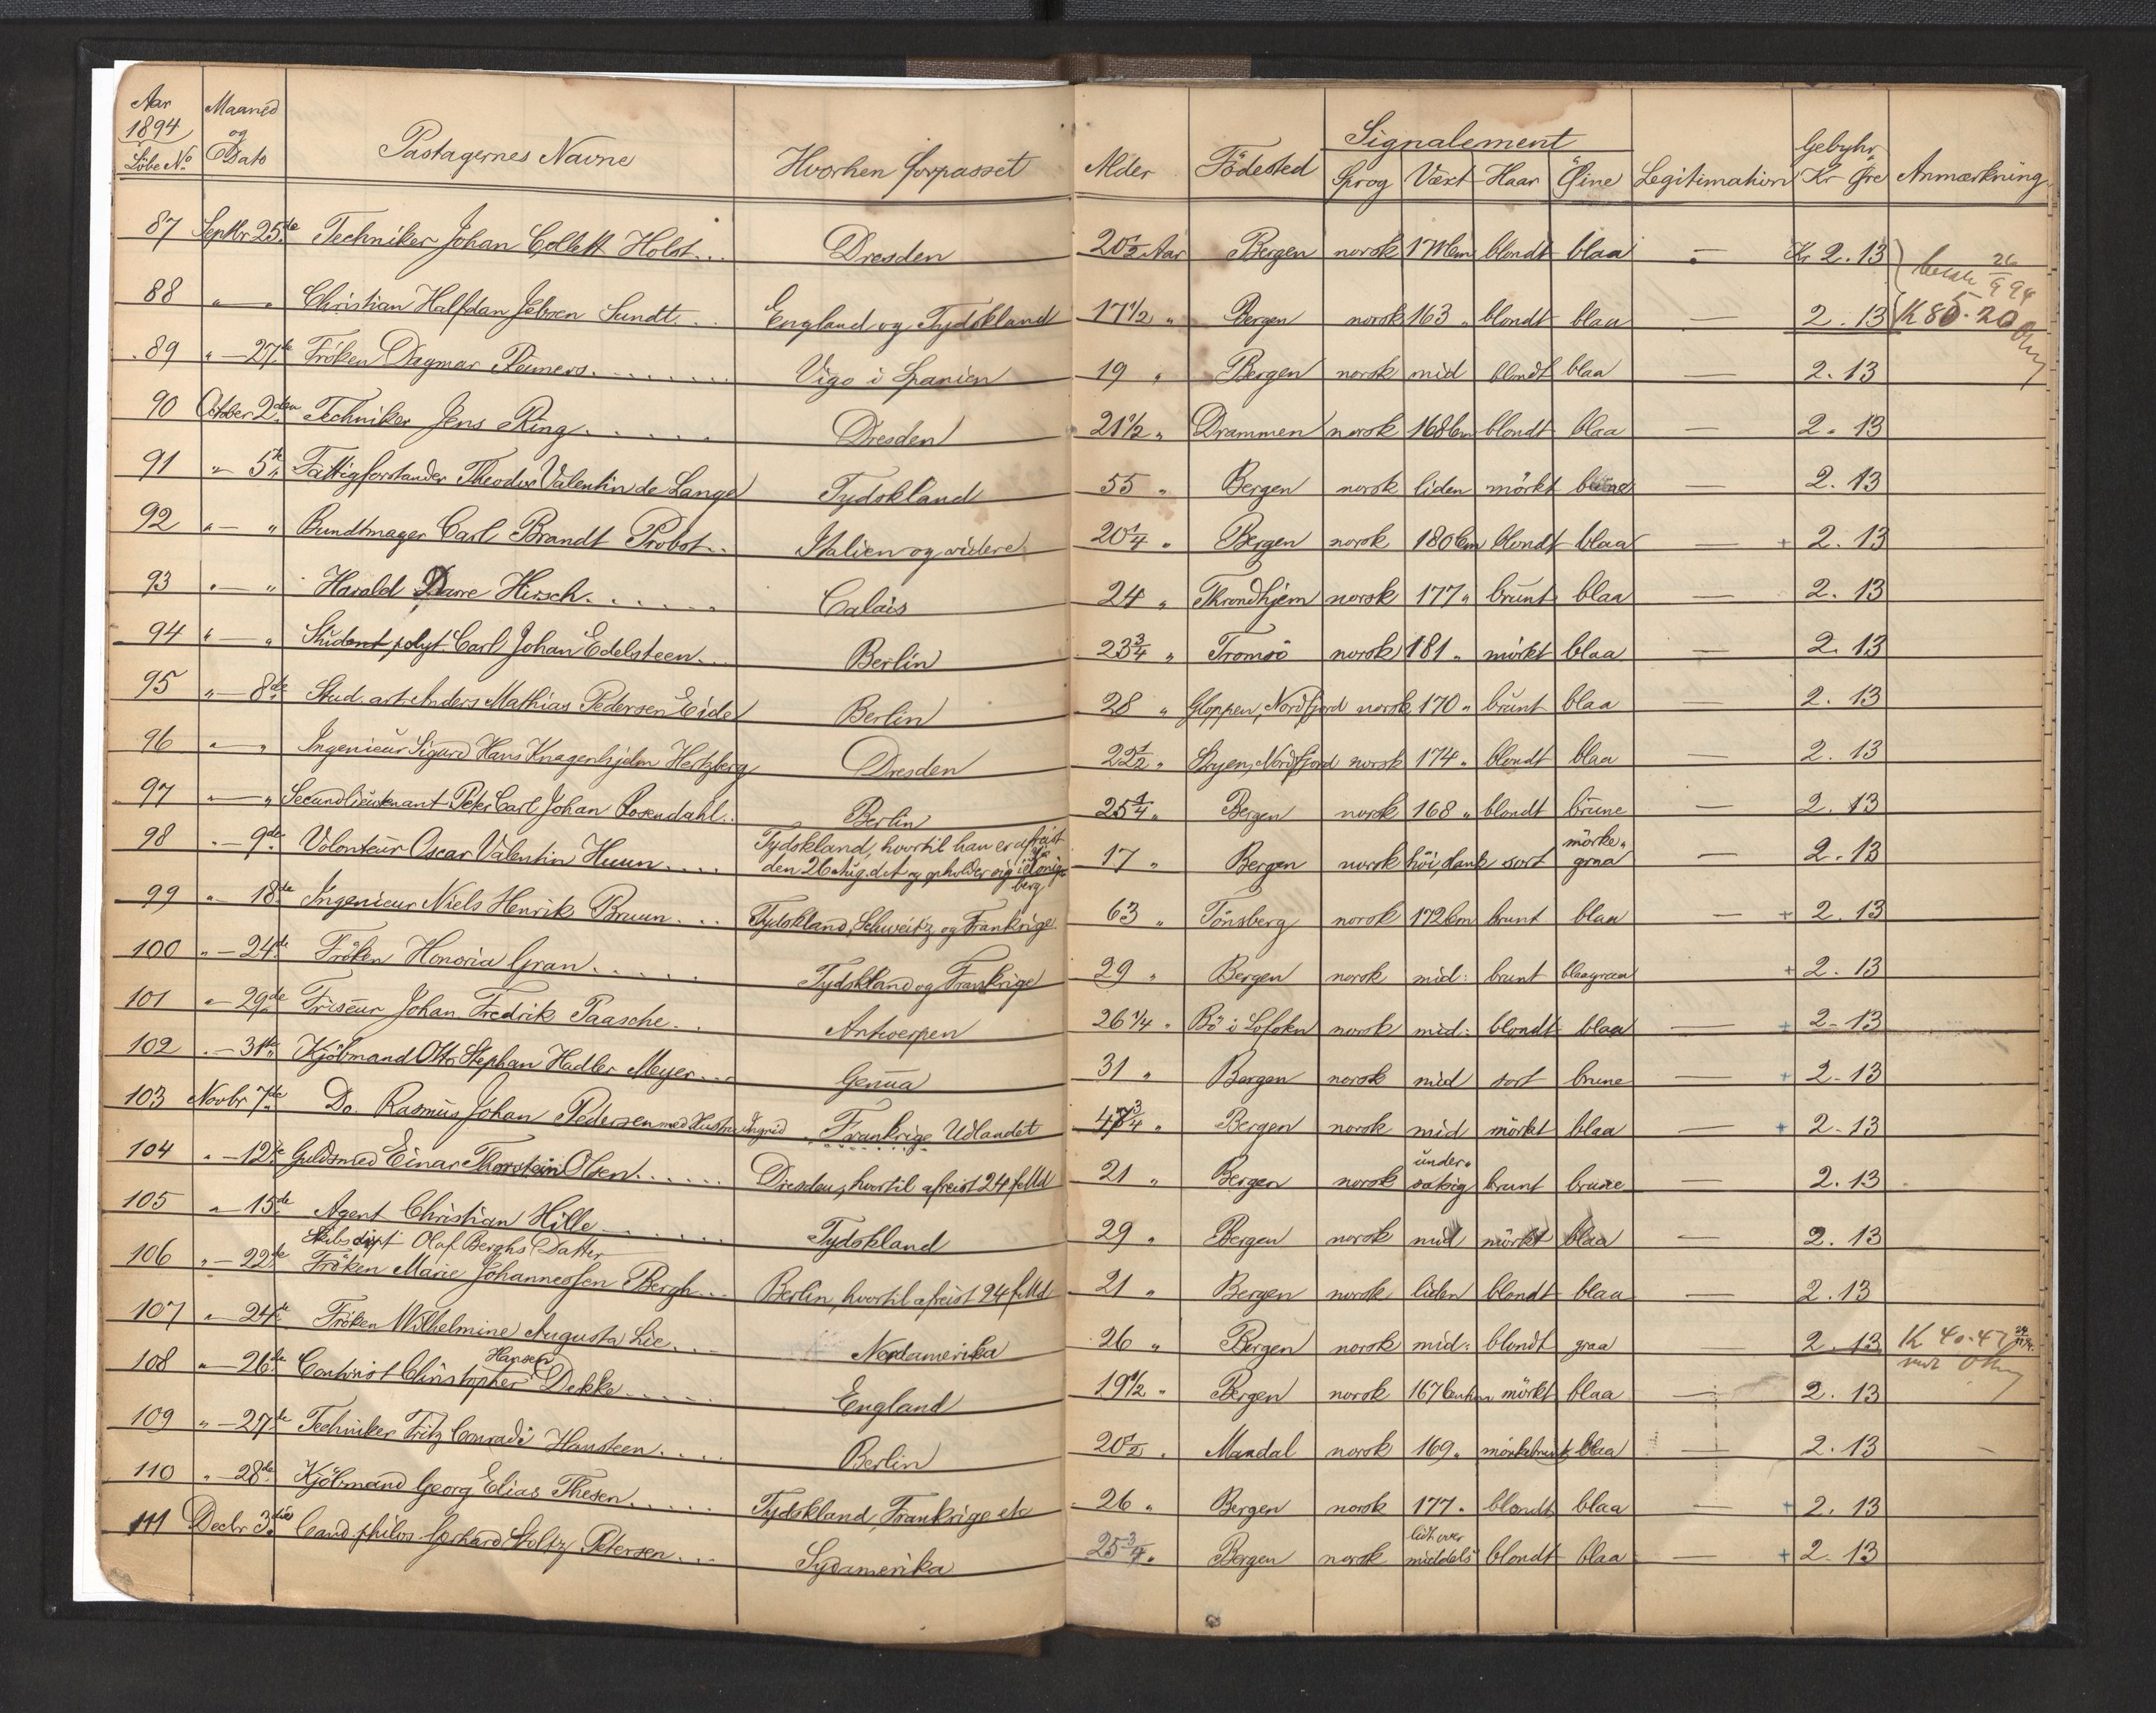 Aar 1894 Löbe No Maaned og Dato Pastagernes Navne Hvorhen forpasset Alder Födested Signalement Sprog Væxt Haar Öine Legitimation Gebyhr Kr Øre Anmærkning
87 Septbr 25de Techniker Johan Collett Holst... Dresden 20 1/2 Aar Bergen norsk 171 Cm blondt blaa — Kr 2.13
88 " — " Christian Halfdan Jebsen Sundt... England og Tydskland 17 1/2 " Bergen norsk 163 " blondt blaa — 2.13 26/9 94
89 " — 27de Fröken Dagmar Reimers....... Vigo i Spanien 19 " Bergen norsk mid blondt blaa — 2.13
90 October 2den Techniker Jens Ring...... Dresden 21 1/2 " Drammen norsk 168 Cm blondt blaa — 2.13
91 " — 5te Fattigforstander Theodor Valentin de Lange Tydskland 55 " Bergen norsk liden mörkt — 2.13
92 " — " Bundtmager Carl Brandt Probst.. Italien og videre 20 1/4 " Bergen norsk 180 Cm blondt blaa — + 2.13
93 " — " Harald Darre Hirsch....... Calais 24 " Throndhjem norsk 177 " brunt blaa — 2.13
94 " — " Student polyt. Carl Johan Edelsteen... Berlin 23 3/4 " Tromsö norsk 181 " mörkt blaa — 2.13
95 " — 8de Stud. art Anders Mathias Pedersen Eide Berlin 28 " Gloppen, Nordfjord norsk 170 " brunt blaa — 2.13
96 " — " Ingenieur Sigurd Hans Knagenhjelm Hertzberg Dresden 22 1/2 " Stryen, Nordfjord norsk 174 " blondt blaa — 2.13
97 " — " Secundlieutenant Peter Carl Johan Rosendahl.. Berlin 25 1/4 " Bergen norsk 168 " blondt brune — 2.13
98 " — 9de Volonteur Oscar Valentin Huun.... Tydskland, hvortil han er afreist den 26 Aug. d.A. og opholder sig i Königsberg 17 " Bergen norsk höi, slank sort mörkegraa — 2.13
99 " — 18de Ingenieur Niels Henrik Bruun.... Tydskland, Schweitz og Frankrige 63 " Tönsberg norsk 172 Cm brunt blaa — + 2.13
100 " — 24de Fröken Honoria Gran...... Tydskland og Frankrige 29 " Bergen norsk mid: brunt blaagraa + 2.13
101 " — 29de Friseur Johan Fredrik Paasche... Antwerpen 26 1/4 " Bö i Lofoten norsk mid: blondt blaa — + 2.13
102 " — 31te Kjöbmand Otto Stephan Hadler Meyer... Genua 31 " Bergen norsk mid sort brune — + 2.13
103 Novbr 7de Do. Rasmus Johan Pedersen med Hustru Ingrid Frankrige Udlandet 47 3/4 " Bergen norsk mid mörkt blaa — + 2.13
104 " — 12te Guldsmed Einar Thorstein Olsen...... Dresden, hvortil afreist 24 f. Md 21 " Bergen norsk undersætsig brunt brune — 2.13
105 " — 15de Agent Christian Hille...... Tydskland 29 " Bergen norsk mid mörkt blaa — 2.13
Olaf Berghs Datter
106 " — 22de Fröken Marie Johannessen Bergh... Berlin, hvortil afreist 24 f. Md 21 " Bergen norsk liden blondt blaa — 2.13
107 " — 24de Fröken Wilhelmine Augusta Lie.... Nordamerika 26 " Bergen norsk mid: blondt graa — 2.13 K 40.47
108 " — 26de Contorist Christopher Hansen Dekke..... England 19 1/2 " Bergen norsk 167 mörkt blaa — 2.13
109 " — 27de Techniker Fritz Conradi Hansteen.... Berlin 20 1/2 " Mandal norsk 169 " mörkebrunt blaa — 2.13
110 " — 28de Kjöbmand Georg Elias Thesen...... Tydskland, Frankrige etc 26 " Bergen norsk 177 " blondt blaa — + 2.13
111 Decbr 3die Cand. philos. Gerhard Stoltz Petersen... Sydamerika 25 3/4 " Bergen norsk lidt over middels blondt blaa — + 2.13